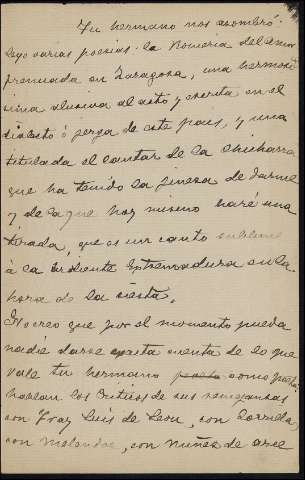 Tu hermano nos asombró.
Leyo varias poesias: la Romeria del Amor
premiada en Zaragoza, una hermosi
sima alusiva al acto y escrita en el
dialecto ó jerga de este pais, y una
titulada el cantar de la chicharra
que ha tenido la fineza de darme
y de la que hoy mismo haré una
tirada, que es un canto sublime
á la ardiente Extremadura en la
hora de la siesta.
No creo que por el momento pueda
nadie darse exacta cuenta de lo que
vale tu hermano poeta como poeta,
hablan los criticos de sus semejanzas
con Fray Luis de Leon, con Zorrilla,
con Melendez, con Nuñez de Arce